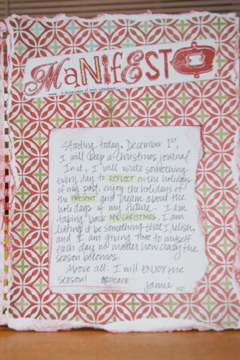 MaNifESTO
Starting today, December 1st,
I will keep a Christmas journal.
In it, I will write something
every day to REFLECT on the holidays
of my past, enjoy the holidays of
the PRESENT and dream about the
holidays of my future. I am
taking back MY CHRISTMAS. I am
letting it be something that I relish,
and I am giving time to myself
each day no matter how crazy the
season becomes.
Above all: I will ENJOY the
season! #peace
Jamie xo